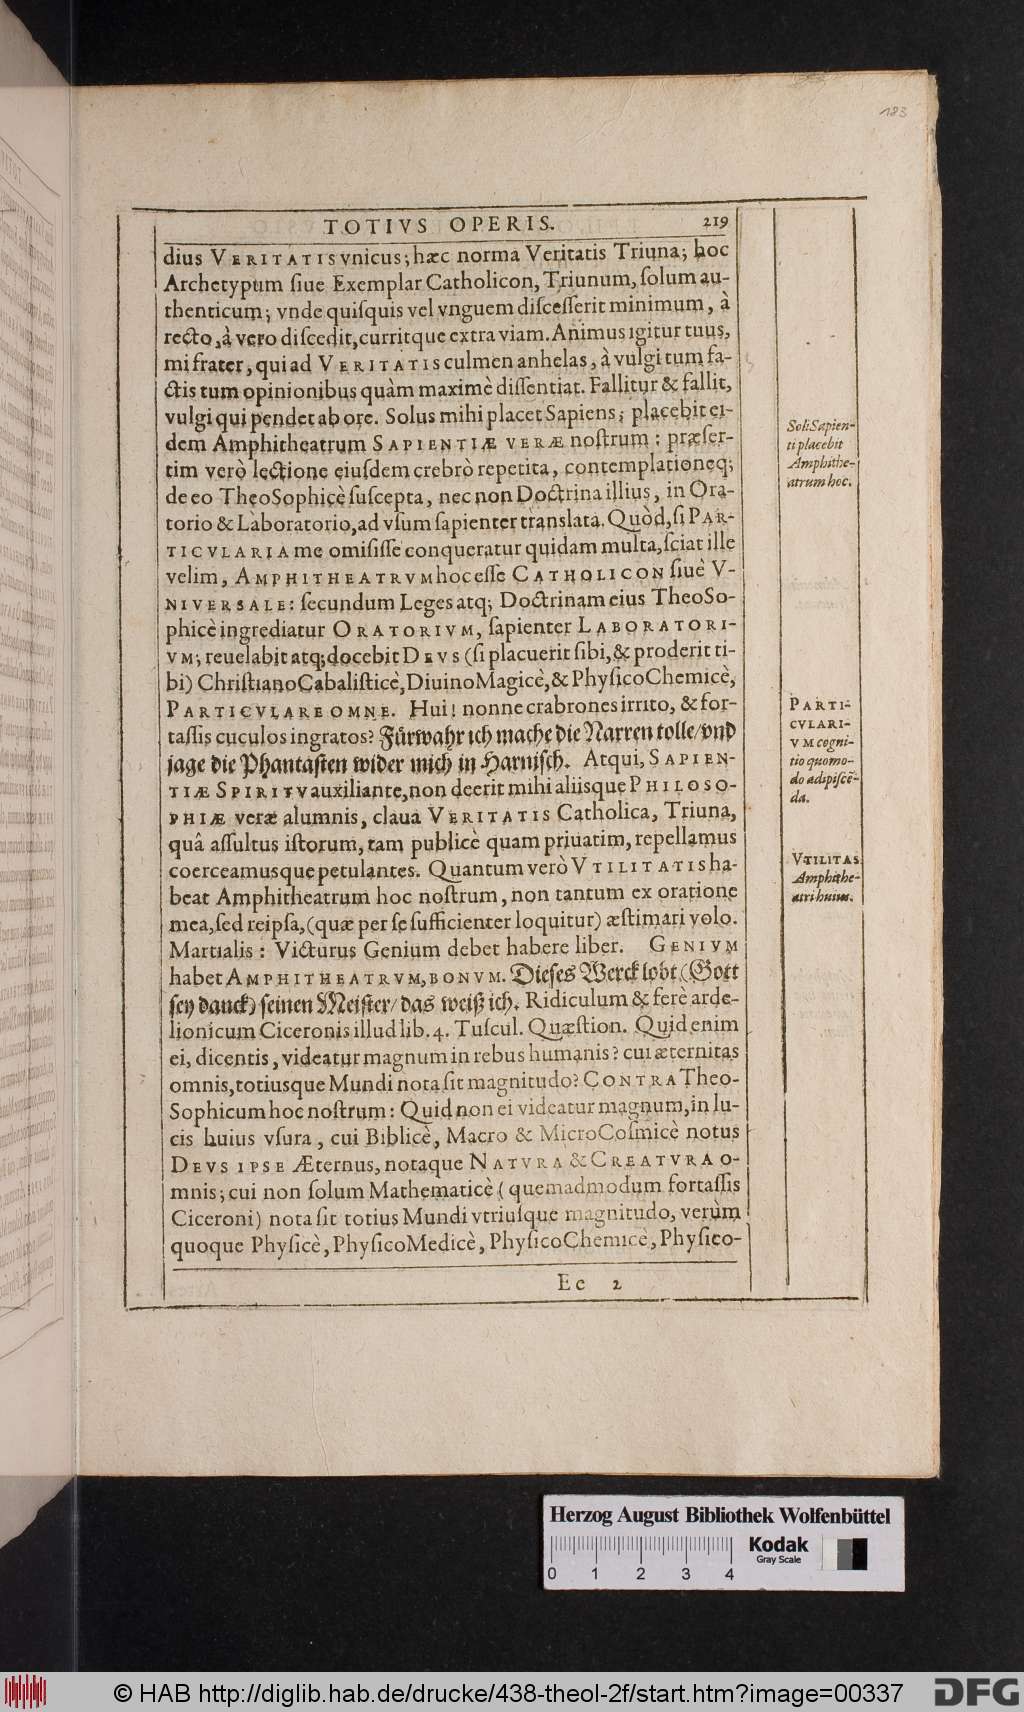 183
TOTIVS OPERIS. 219
dius VERITATIS vnicus; hæc norma Veritatis Triuna; hoc
Archetypum ſiue Exemplar Catholicon, Triunum, ſolum au-
thenticum; vnde quiſquis vel vnguem diſceſſerit minimum, à
recto, à vero diſcedit, curritque extra viam. Animus igitur tuus,
mi frater, qui ad VERITATIS culmen anhelas, à vulgi tum fa-
ctis tum opinionibus quàm maximè diſſentiat. Fallitur & fallit,
vulgi qui pendet ab ore. Solus mihi placet Sapiens; placebit ei-
dem Amphitheatrum SAPIENTIÆ VERÆ noſtrum: præſer-
tim verò lectione eiuſdem crebrò repetita, contemplationeq;
de eo TheoSophicè ſuſcepta, nec non Doctrina illius, in Ora-
torio & Laboratorio, ad vſum ſapienter translata. Quòd, ſi PAR-
TICVLARIA me omiſiſſe conqueratur quidam multa, ſciat ille
velim, AMPHITHEATRVM hoc eſſe CATHOLICON ſiuè V-
NIVERSALE: ſecundum Leges atq; Doctrinam eius TheoSo-
phicè ingrediatur ORATORIVM, ſapienter LABORATORI-
VM; reuelabit atq; docebit DEVS (ſi placuerit ſibi, & proderit ti-
bi) ChriſtianoCabaliſticè, DiuinoMagicè, & PhyſicoChemicè,
PARTICVLARE OMNE. Hui! nonne crabrones irrito, & for-
taſſis cuculos ingratos? Fürwahr ich mache die Narren tolle/ vnd
jage die Phantaſten wider mich in Harniſch. Atqui, SAPIEN-
TIÆ SPIRITV auxiliante, non deerit mihi aliisque PHILOSO-
PHIÆ veræ alumnis, claua VERITATIS Catholica, Triuna,
quâ aſſultus iſtorum, tam publicè quam priuatim, repellamus
coerceamusque petulantes. Quantum verò VTILITATIS ha-
beat Amphitheatrum hoc noſtrum, non tantum ex oratione
mea, ſed reipſa, (quæ per ſe ſufficienter loquitur) æſtimari volo.
Martialis: Victurus Genium debet habere liber. GENIVM
habet AMPHITHEATRVM, BONVM. Dieſes Werck lobt (Gott
ſey danck) ſeinen Meiſter/ das weiß ich. Ridiculum & ferè arde-
lionicum Ciceronis illud lib. 4. Tuſcul. Quæſtion. Quid enim
ei, dicentis, videatur magnum in rebus humanis? cui æternitas
omnis, totiusque Mundi nota ſit magnitudo? CONTRA Theo-
Sophicum hoc noſtrum: Quid non ei videatur magnum, in lu-
cis huius vſura, cui Biblicè, Macro & MicroCoſmicè notus
DEVS IPSE Æternus, notaque NATVRA & CREATVRA o-
mnis; cui non ſolum Mathematicè (quemadmodum fortaſſis
Ciceroni) nota ſit totius Mundi vtriuſque magnitudo, verùm
quoque Phyſicè, PhyſicoMedicè, PhyſicoChemicè, Phyſico-
Ee 2
Soli Sapien-
ti placebit
Amphithe-
atrum hoc.
PARTI-
CVLARI-
VM cogni-
tio quomo-
do adipiſcē-
da.
VTILITAS
Amphithe-
atri huius.
Herzog August Bibliothek Wolfenbüttel
Kodak
Gray Scale
0 1 2 3 4
© HAB http://diglib.hab.de/drucke/438-theol-2f/start.htm?image=00337
DFG